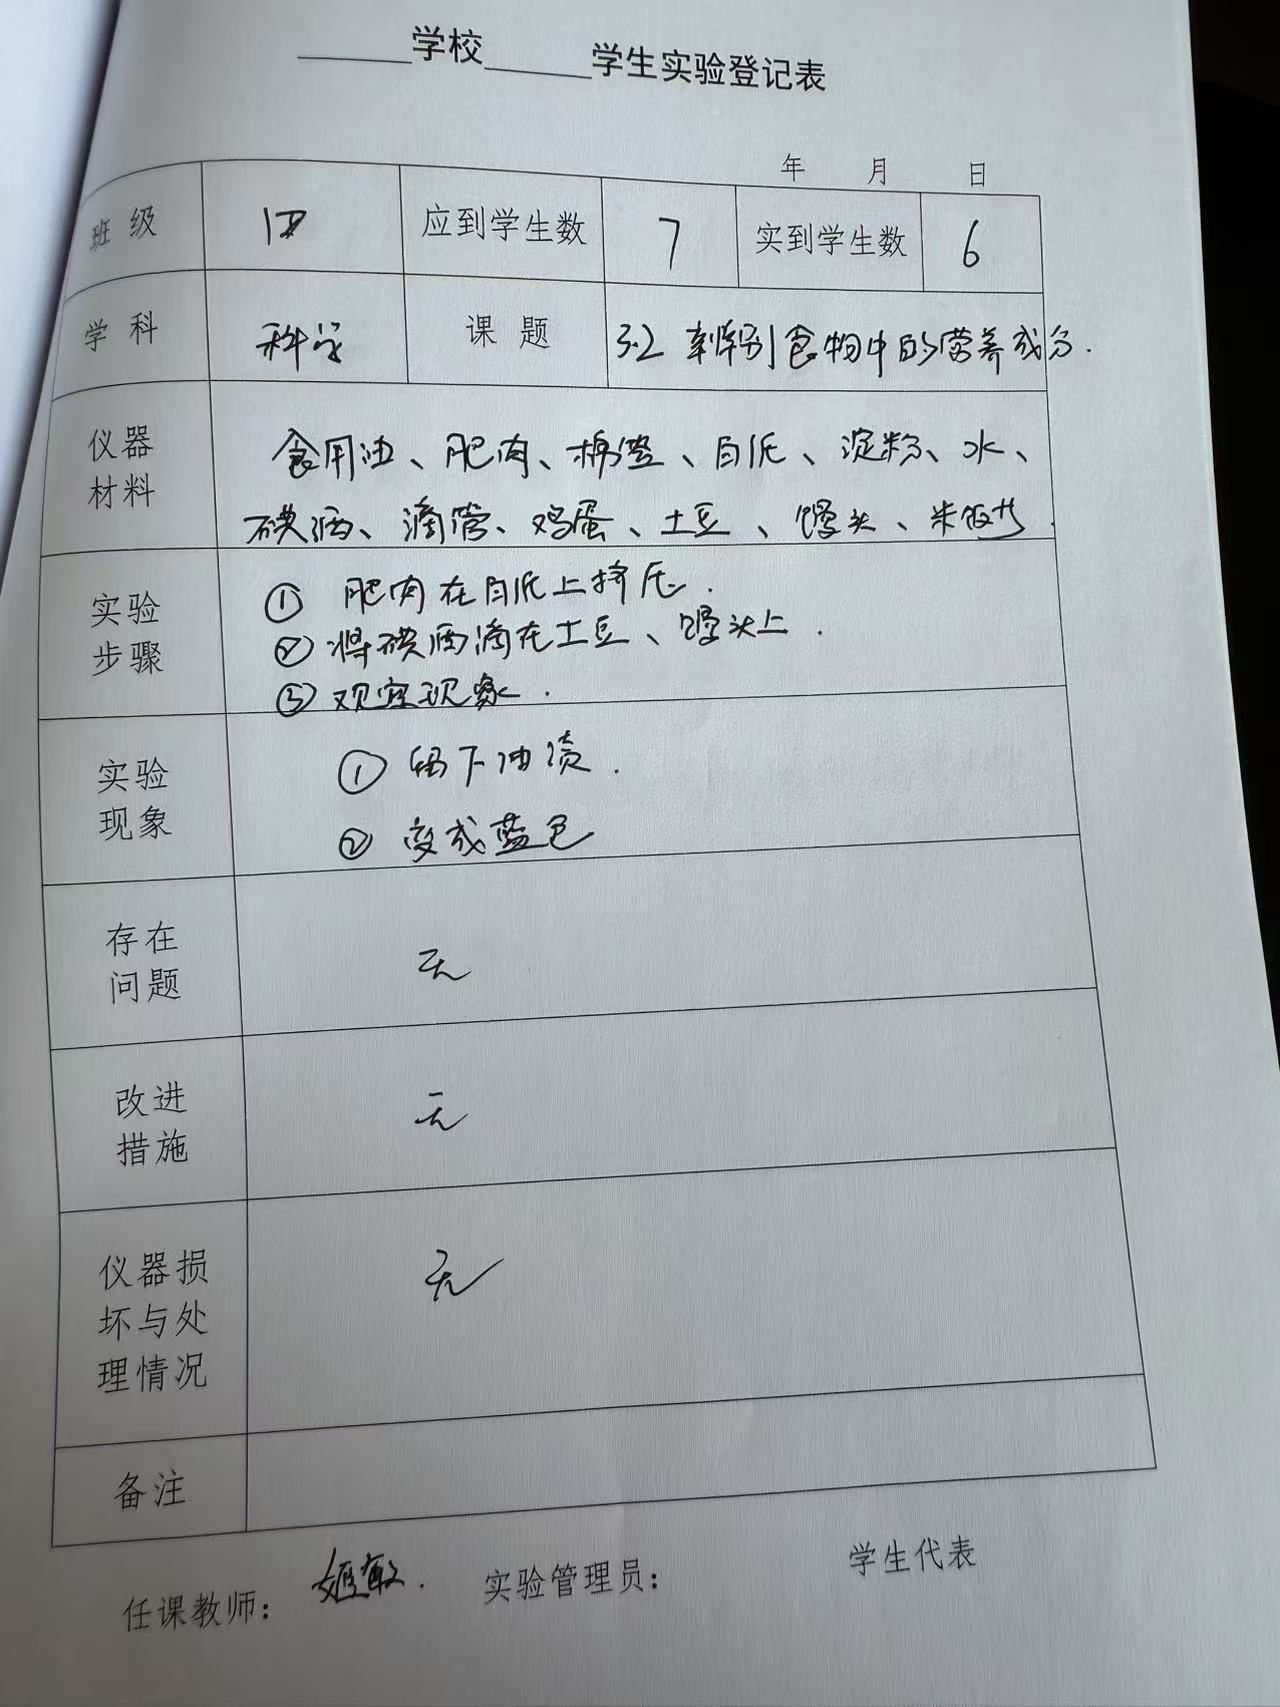 ______学校______学生实验登记表
年 月 日
班级 应到学生数 7 实到学生数 6
学科 科学 课题 3.2 辨别食物中的营养成分.
仪器材料 食用油、肥肉、棉签、白纸、淀粉、水、
碘酒、滴管、鸡蛋、土豆、馒头、米饭
实验步骤 ① 肥肉在白纸上挤压.
② 将碘酒滴在土豆、馒头上.
③ 观察现象.
实验现象 ① 留下油渍.
② 变成蓝色
存在问题 无
改进措施 无
仪器损坏与处理情况 无
备注
任课教师: 实验管理员: 学生代表